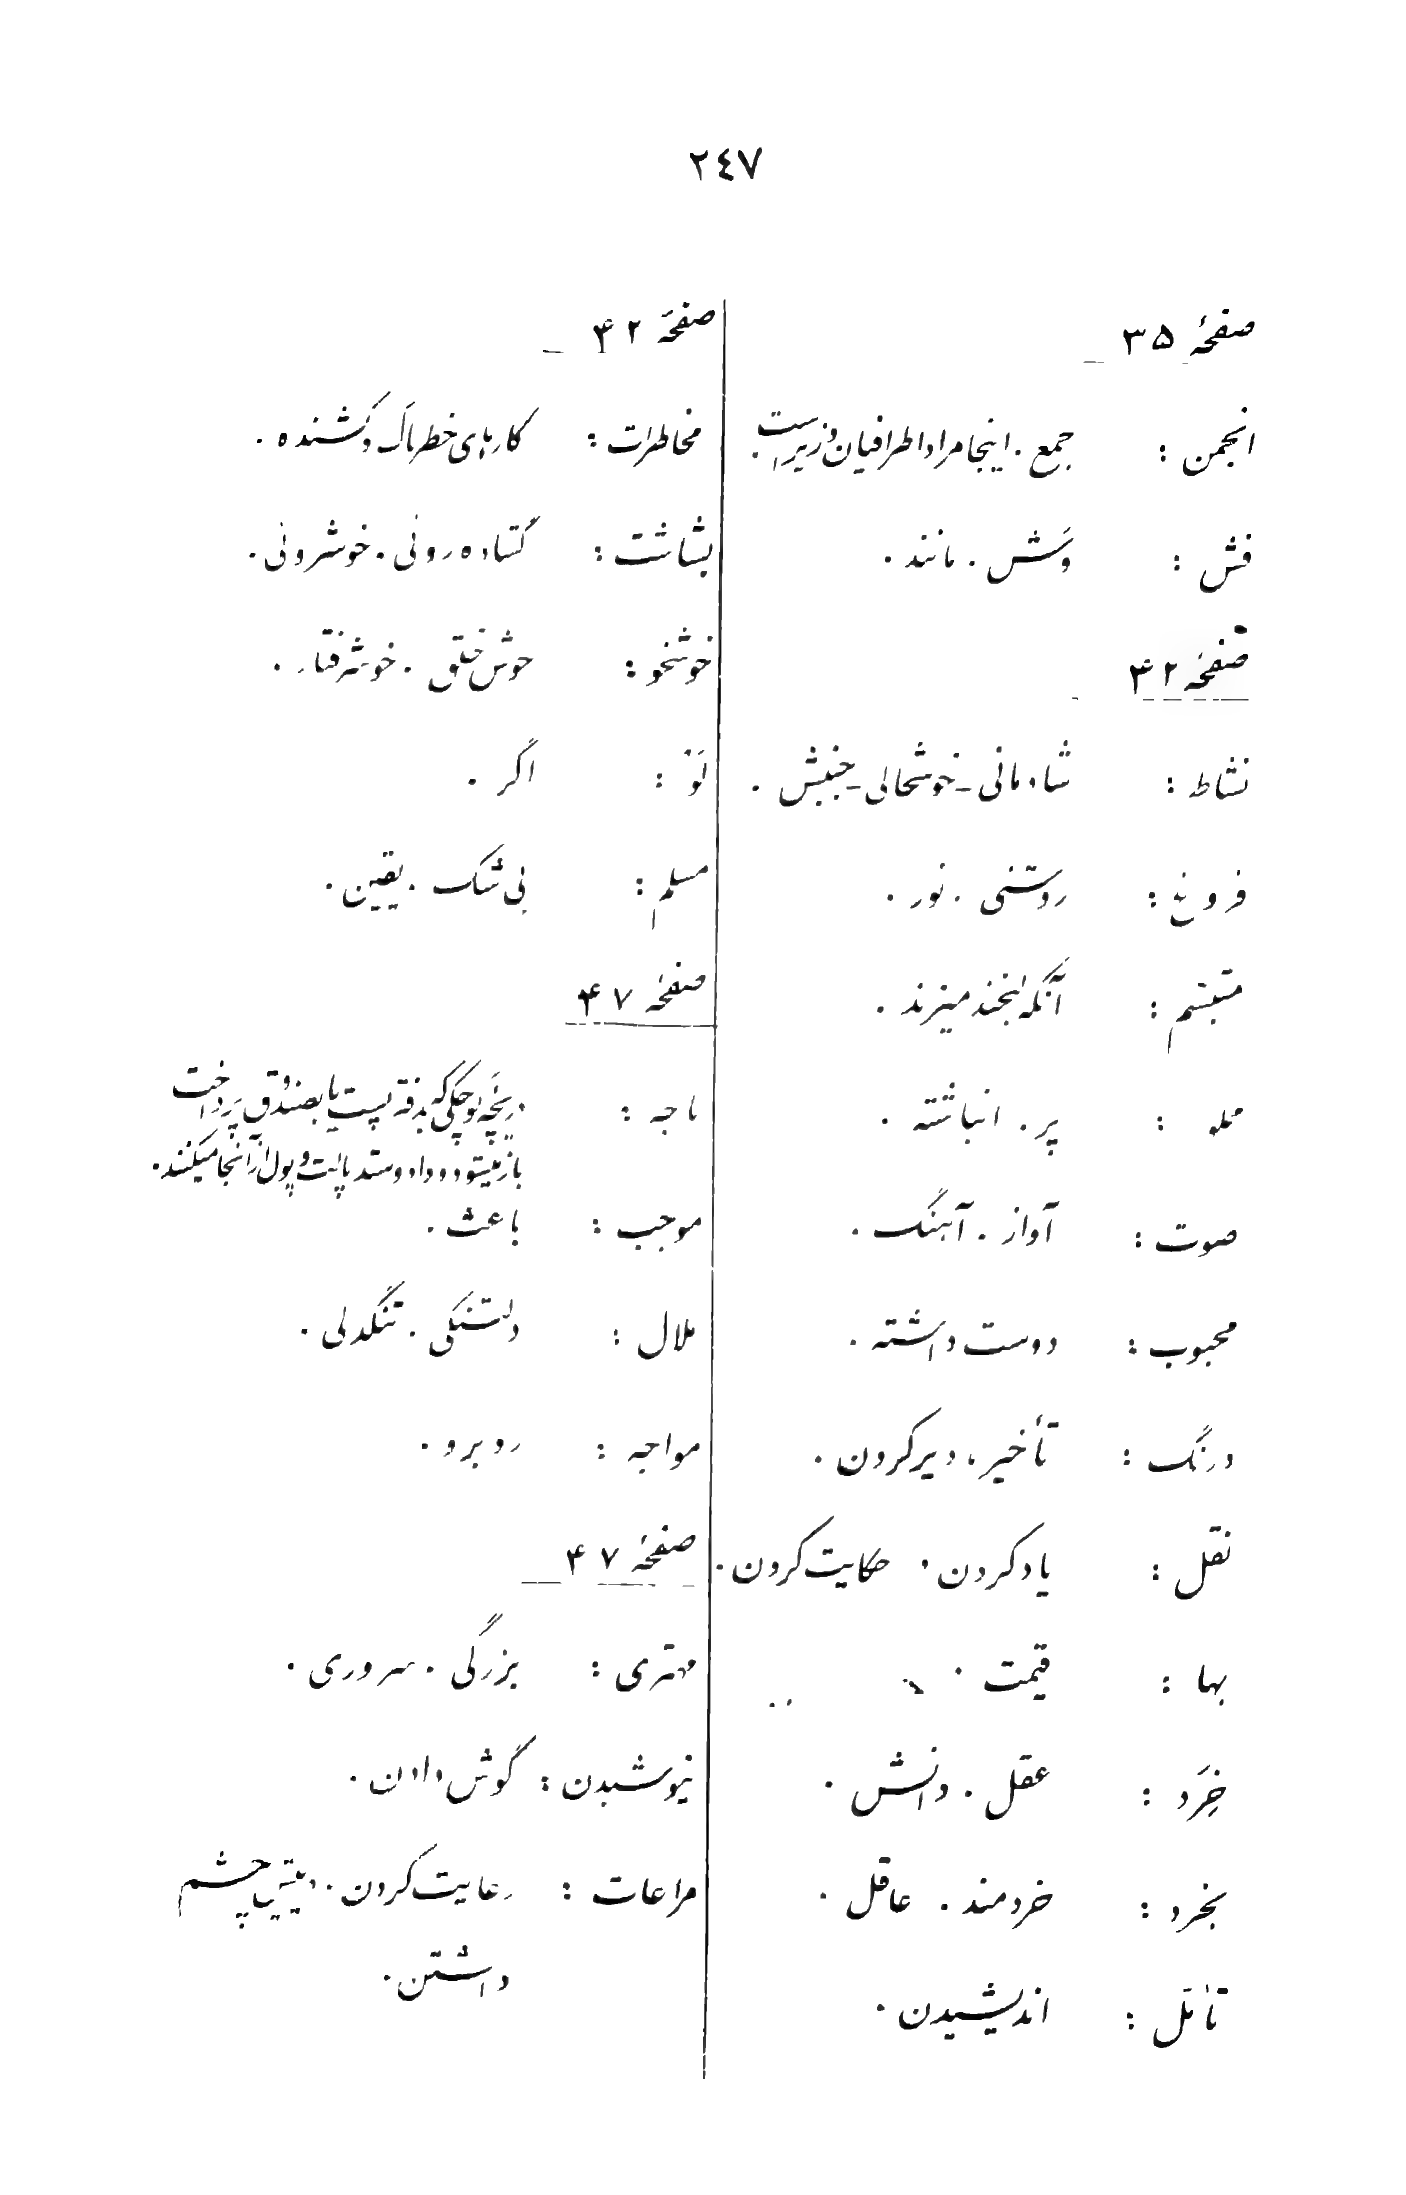 ۲۴۷
صفحهٔ ۳۵
انجمن : جمع . اینجا مراد اطرافیان وزیر است .
فش : وَش . مانند .
صفحهٔ ۴۲
نشاط : شادمانی - خوشحالی - جنبش .
فروغ : روشنی . نور .
متبسّم : آنکه لبخند میزند .
مملو : پر . انباشته .
صوت : آواز . آهنگ .
محبوب : دوست داشته .
درنگ : تأخیر ، دیر کردن .
نقل : یاد کردن . حکایت کردن .
بها : قیمت .
خِرَد : عقل . دانش .
بخرد : خردمند . عاقل .
تأمّل : اندیشیدن .
صفحهٔ ۴۲
مخاطرات : کارهای خطرناک و کُشنده .
بشاشت : گشاده روئی . خوشروئی .
خوشخو : خوش خلق . خوشرفتار .
اگر .
مسلم : بی شک . یقین .
صفحهٔ ۴۷
باجه : دریچه کوچکی که بدفتر پست یا بصندوق پرداخت
باز میشود و داد و ستد پاکت و پول از آنجا میکنند .
موجب : باعث .
ملال : دلتنگی . تنگدلی .
مواجه : روبرو .
صفحهٔ ۴۷
مهتری : بزرگی . سروری .
نیوشیدن : گوش دادن .
مراعات : رعایت کردن . در پیش چشم
داشتن .